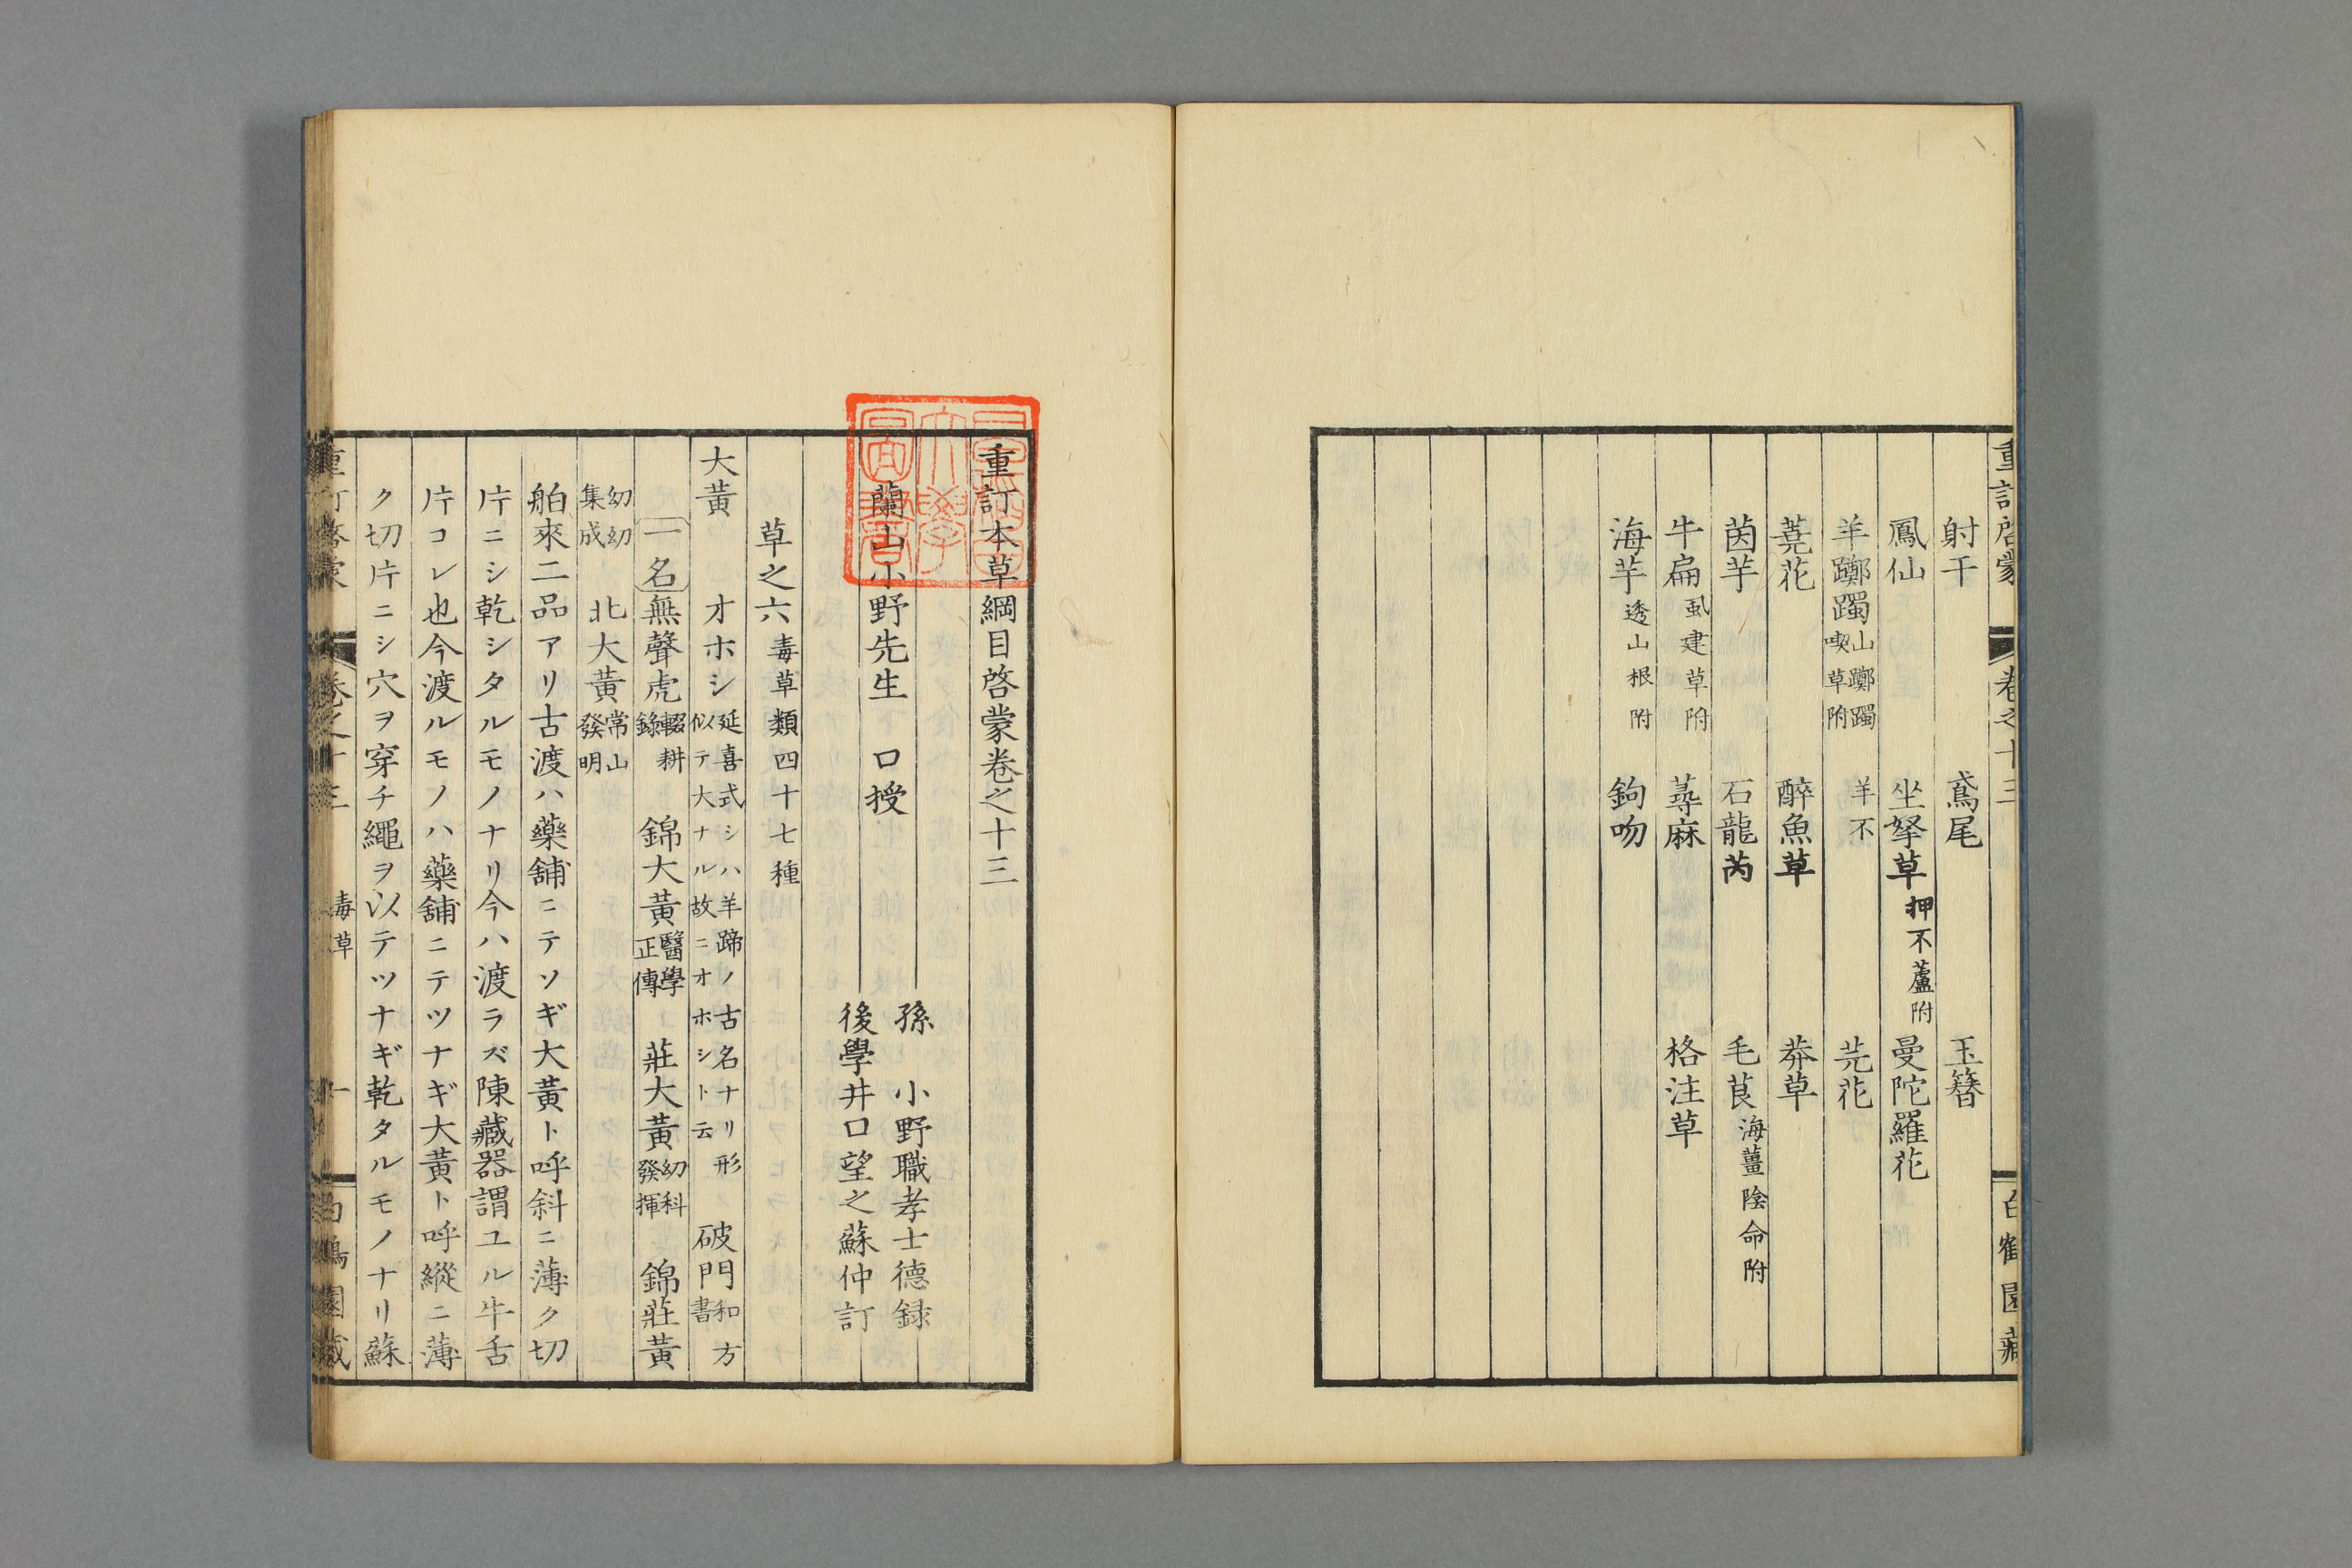 重訂啓蒙 卷之十三 白鶴園藏
射干 鳶尾 玉簪
鳳仙 坐拏草 押不蘆附 曼陀羅花
羊躑躅 山躑躅 羊不喫草附 芫花
蕘花 醉魚草 莽草
茵芋 石龍芮 毛茛 海薑 陰命附
牛扁 虱建草附 蕁麻 格注草
海芋 透山根附 鉤吻
重訂本草綱目啓蒙卷之十三
蘭山小野先生 口授
孫 小野職孝士德録
後學井口望之蘇仲訂
草之六 毒草類四十七種
大黃 オホシ 延喜式シハ羊蹄ノ古名ナリ形似テ大ナル故ニオホシト云 破門 和方書
一名 無聲虎 輟耕錄 錦大黃 醫學正傳 莊大黃 幼科發揮 錦莊黃
幼幼集成 北大黃 常山發明
舶來二品アリ古渡ハ藥舖ニテソギ大黃ト呼斜ニ薄ク切
片ニシ乾シタルモノナリ今ハ渡ラズ陳藏器謂ユル牛舌
片コレ也今渡ルモノハ藥舖ニテツナギ大黃ト呼縱ニ薄
ク切片ニシ穴ヲ穿チ繩ヲ以テツナギ乾タルモノナリ蘇
卷之十三 毒草 一